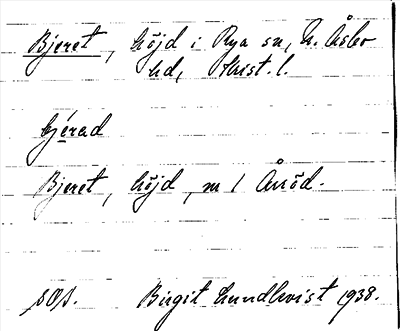 Bjeret, höjd i Rya sn, N. Åsbo
hd, Krist. l.
bjérad
Bjeret, höjd, m / Årröd.
SOA. Birgit Lundkvist 1938.